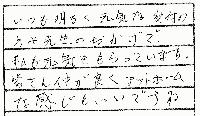 いつも明るく元気な受付の
方や先生のおかげで
私も元気をもらっています。
皆さん仲が良くアットホーム
な感じもいいですね